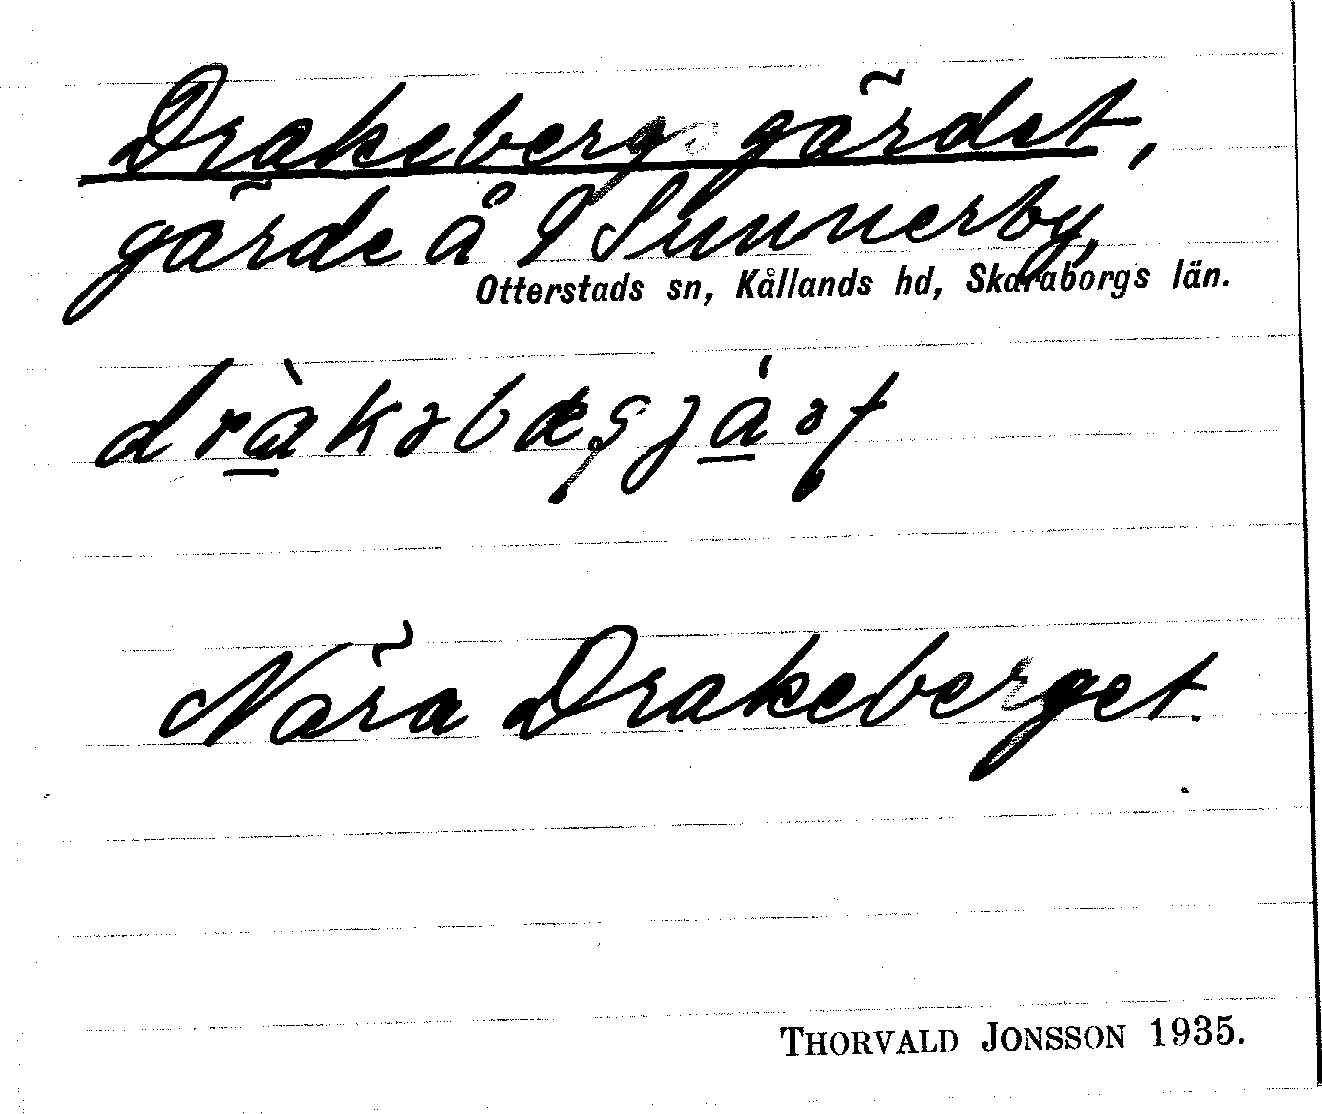 Drakebergsgärdet,
gärde å S Sunnerby,
Otterstads sn, Kållands hd, Skaraborgs län.
Nära Drakeberget.
THORVALD JONSSON 1935.